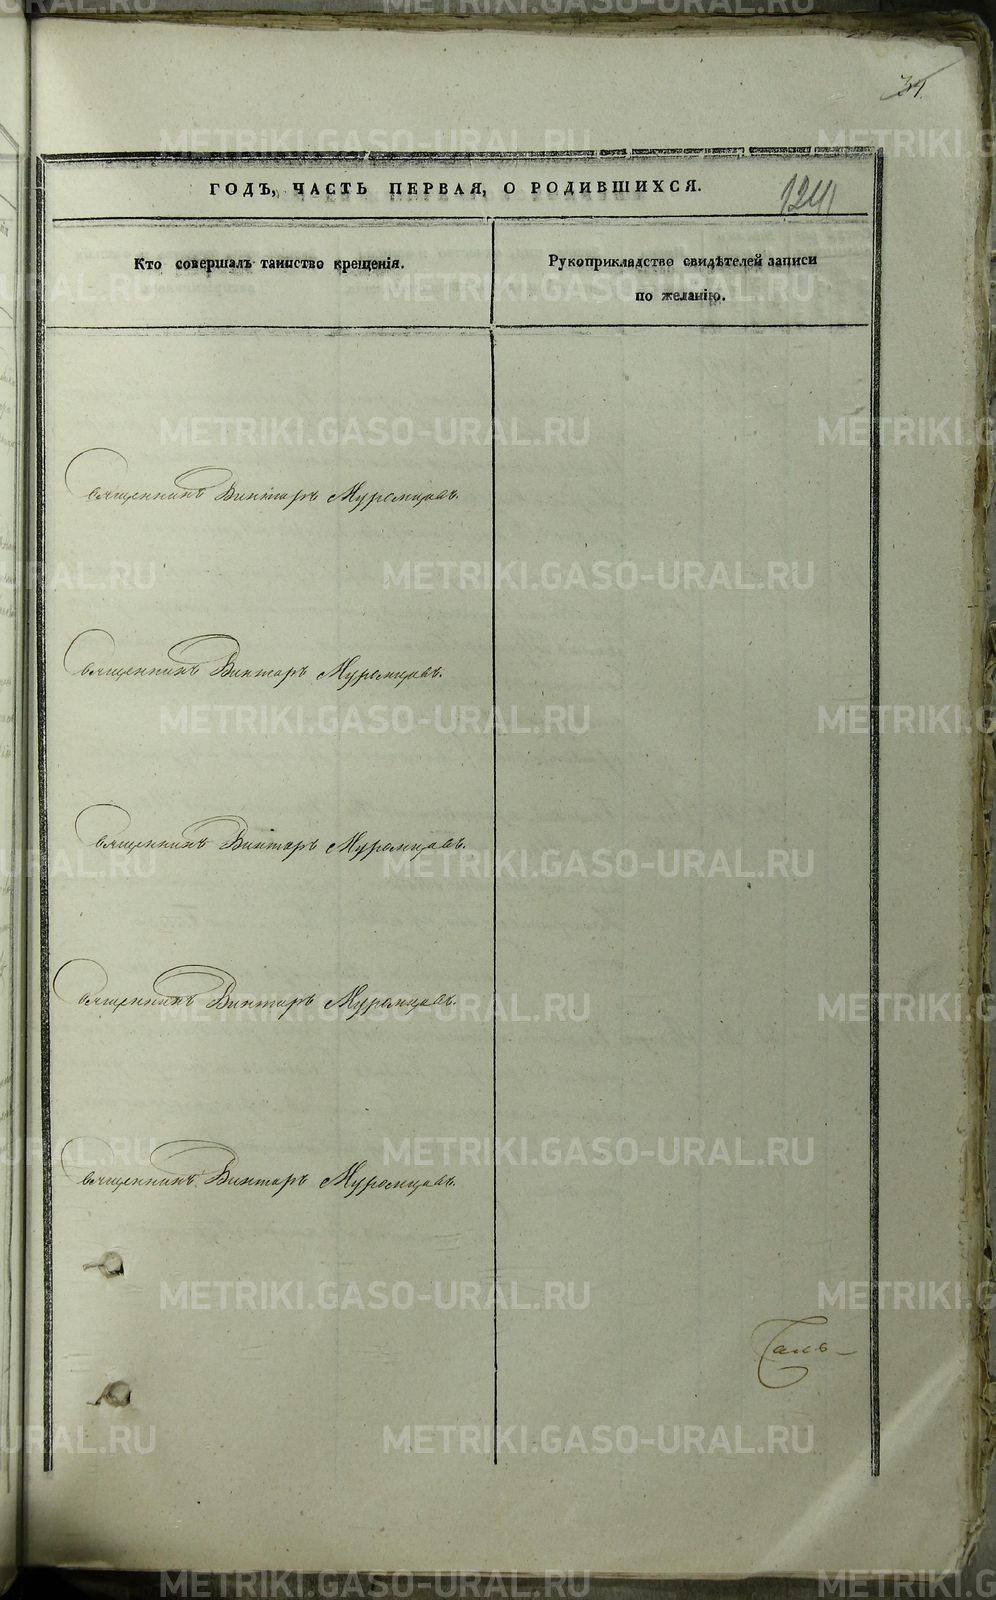 34
ГОДЪ, ЧАСТЬ ПЕРВАЯ, О РОДИВШИХСЯ.
124
Кто совершалъ таинство крещенія.
Рукоприкладство свидѣтелей записи
по желанію.
Священникъ Викторъ Муромцовъ.
Священникъ Викторъ Муромцовъ.
Священникъ Викторъ Муромцовъ.
Священникъ Викторъ Муромцовъ.
Священникъ Викторъ Муромцовъ.
METRIKI.GASO-URAL.RU